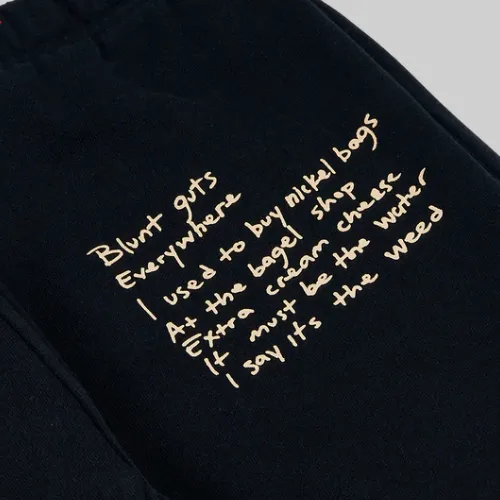 Blunt guts
Everywhere
I used to buy nickel bags
At the bagel shop
Extra cream cheese
It must be the water
I say it's the weed